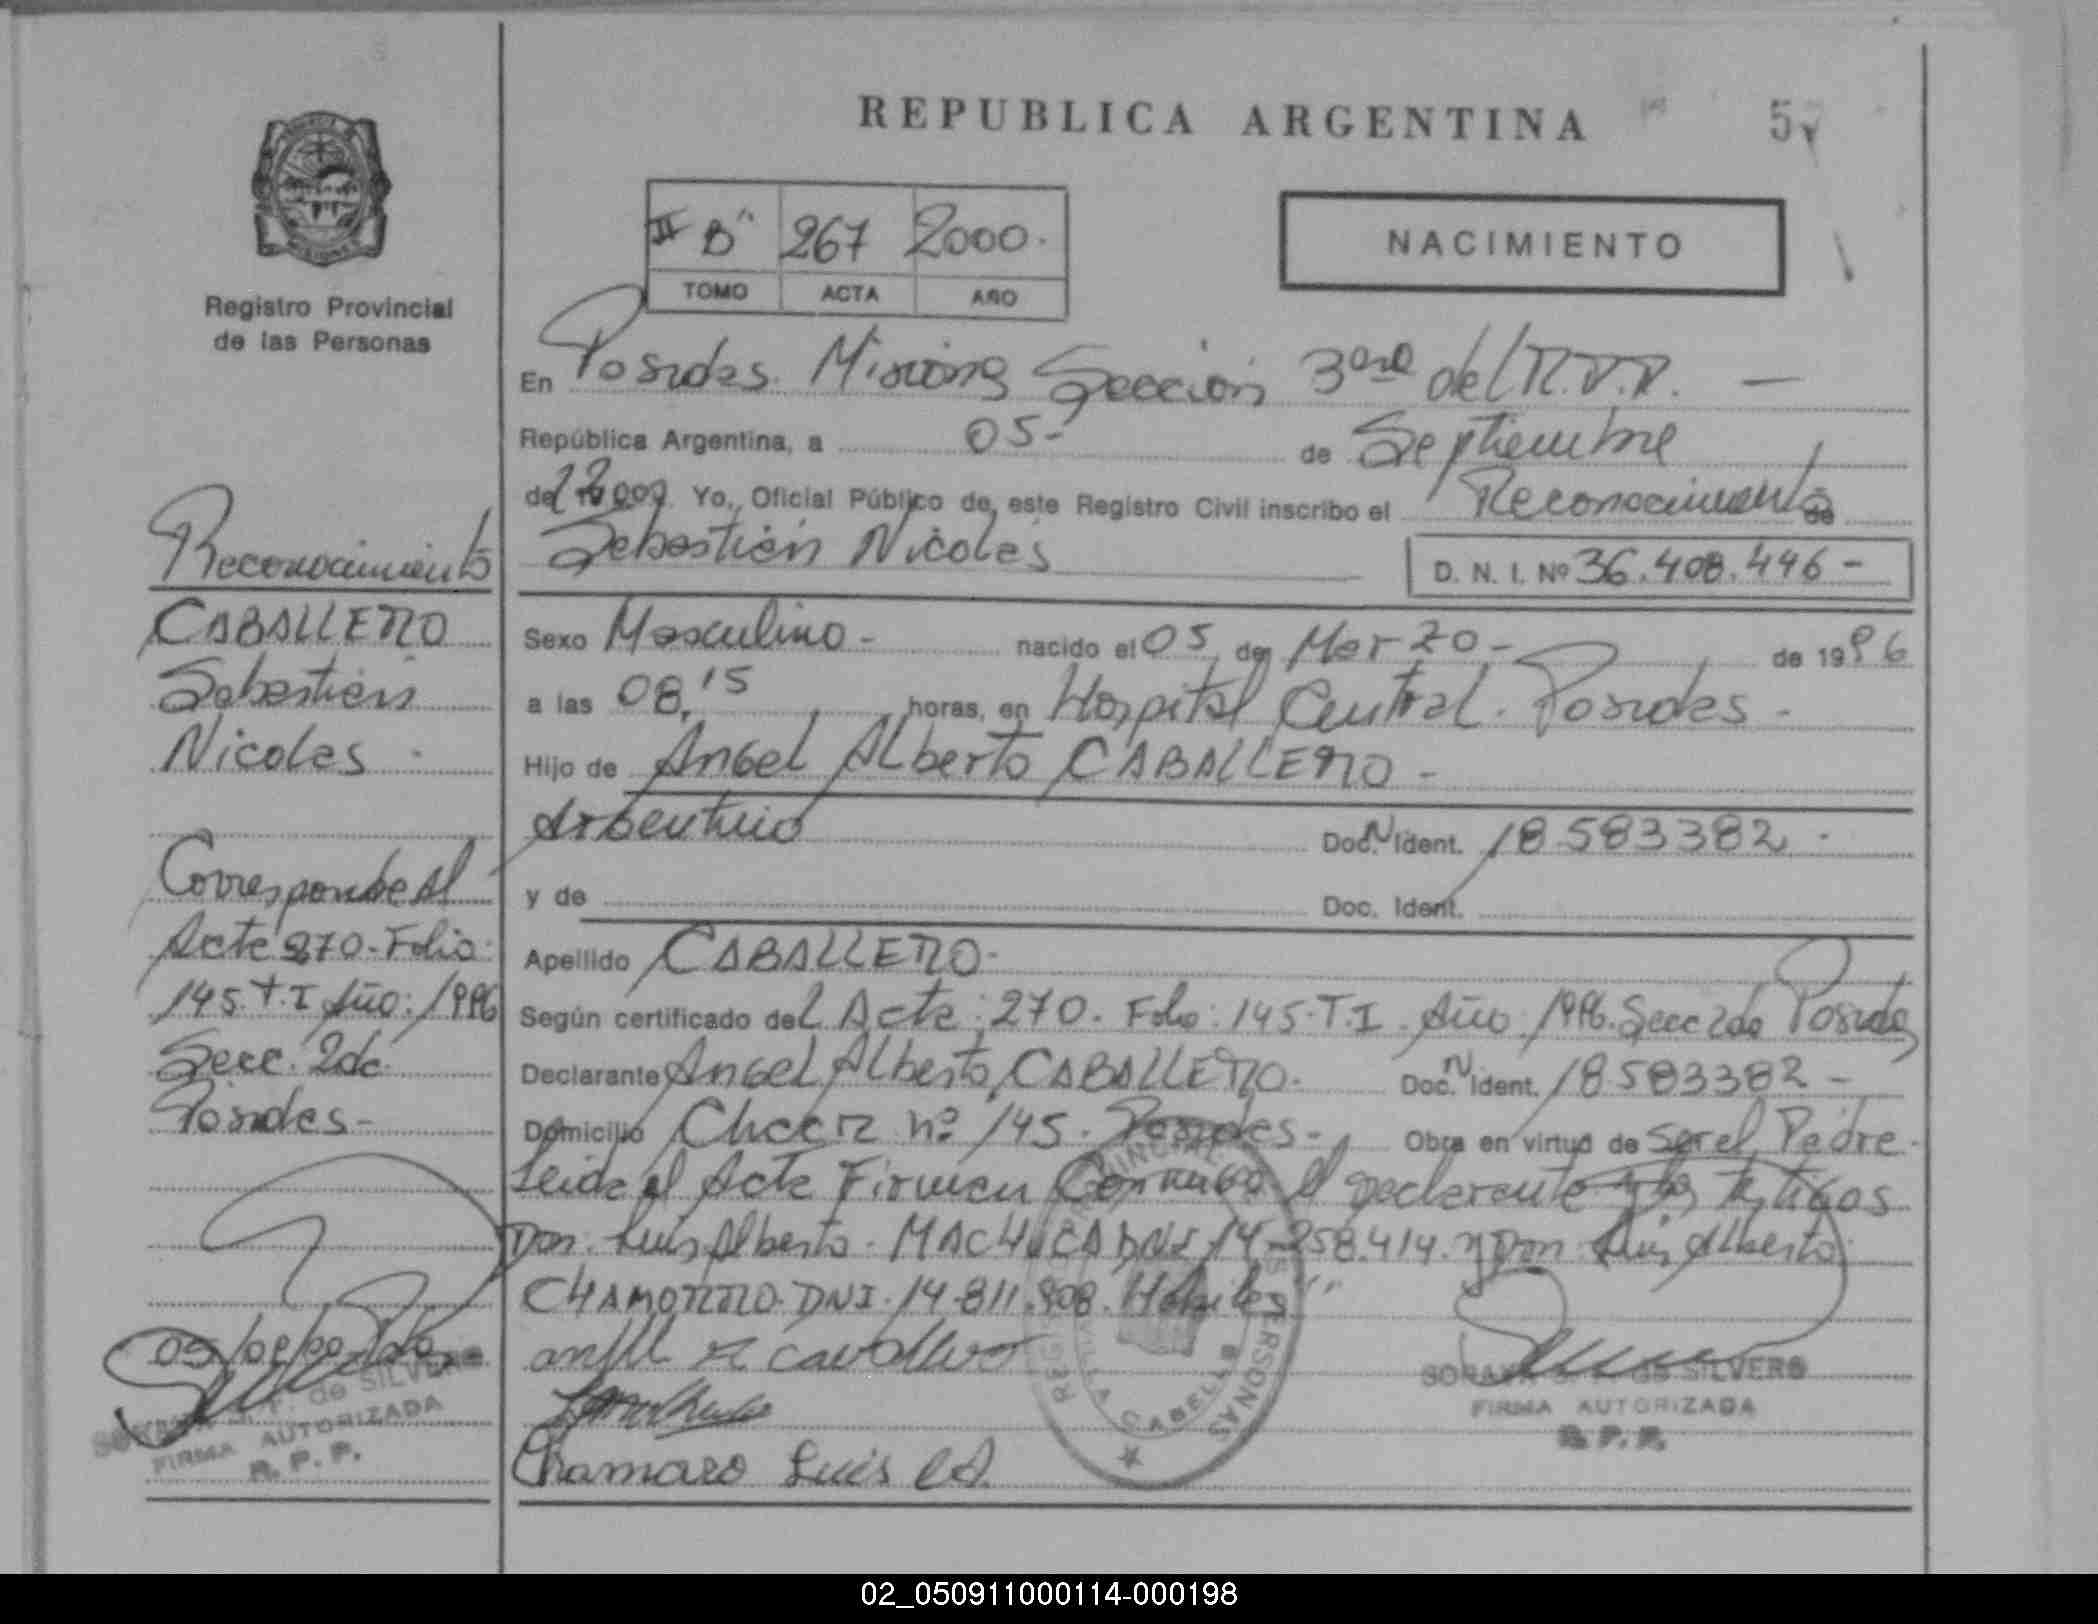 REPUBLICA ARGENTINA
57
II "B" 267 2000.
TOMO ACTA AÑO
NACIMIENTO
Registro Provincial
de las Personas
En Posadas. Misiones Sección 3era del R.P.P. —
República Argentina, a 05- de Septiembre
de 2000. Yo, Oficial Público de este Registro Civil inscribo el Reconocimiento de
Sebastián Nicolás
D. N. I. Nº 36.408.446 -
Sexo Masculino - nacido el 05 de Marzo - de 1996
a las 08,15 horas, en Hospital Central. Posadas -
Hijo de Angel Alberto CABALLERO -
Argentino Doc. N Ident. 18.583382 -
y de Doc. Ident.
Apellido CABALLERO-
Según certificado del Acta: 270. Folio: 145. T.I. Año: 1996. Secc 2da Posadas
Declarante Angel Alberto CABALLERO. Doc. N Ident. 18.583382 -
Domicilio Chacra nº 145. Posadas - Obra en virtud de ser el Padre.
Leida el Acta Firman Conmigo el declarante y los testigos
Don. Luis Alberto. MACHUCA DNI 14-258.414. y Don Luis Alberto
CHAMORRO. DNI. 14.811.908. Hábiles
Chamaro Luis A.
Reconocimiento
CABALLERO
Sebastián
Nicolás
Corresponde Al
Acta 270 - Folio:
145. T. I Año: 1996
Secc. 2da
Posadas -
SILVERO
FIRMA AUTORIZADA
R. P. P.
SILVERO
FIRMA AUTORIZADA
R. P. P.
PERSONAS
CABELLO
02_050911000114-000198